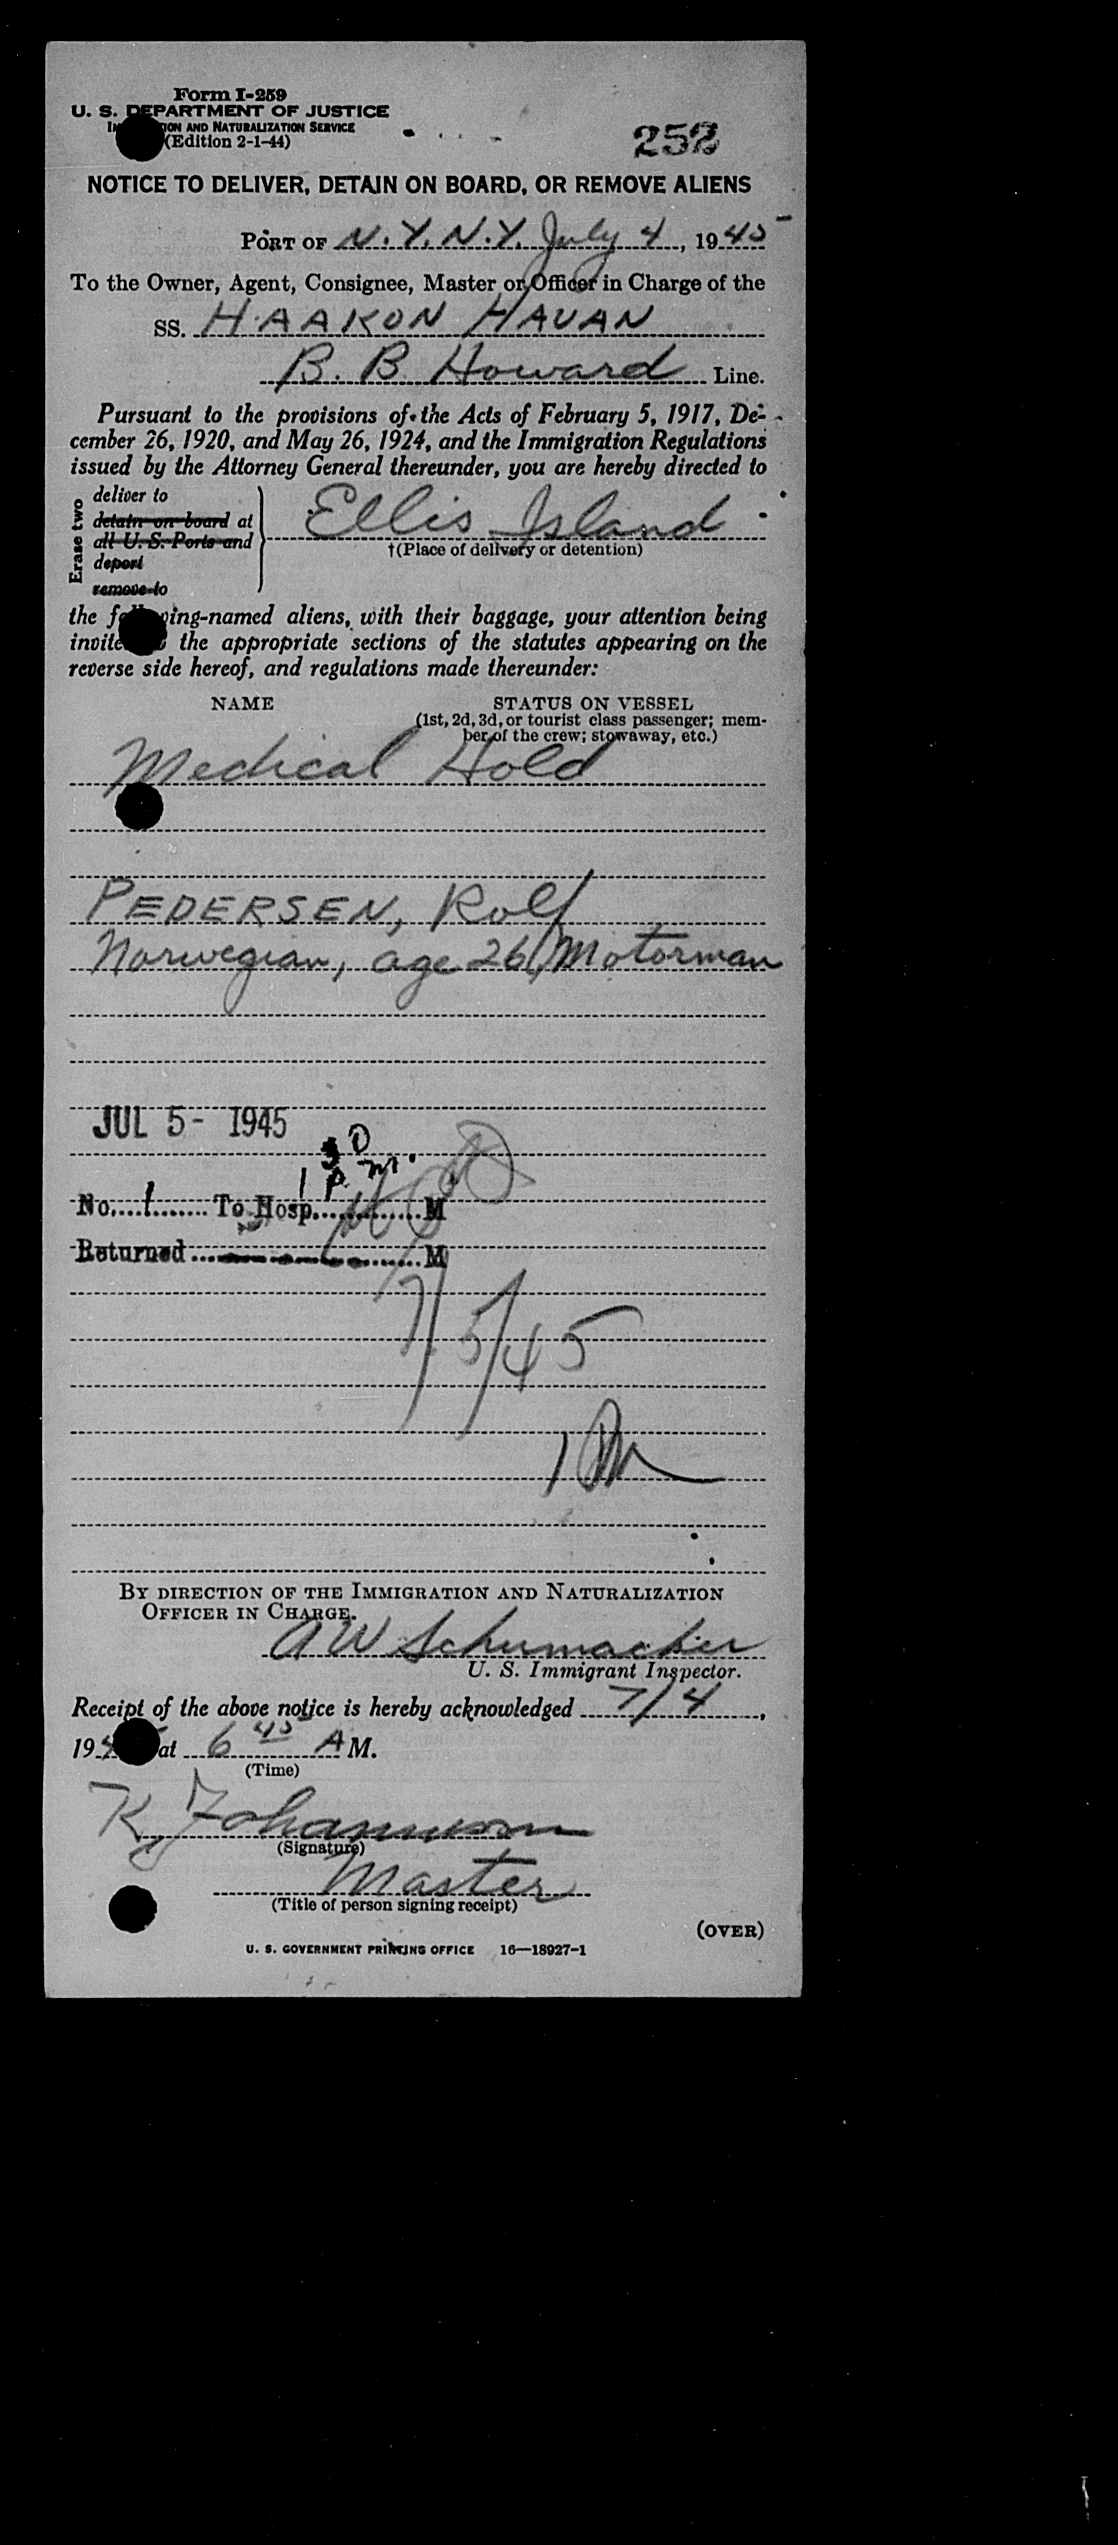 Form I-259
U. S. DEPARTMENT OF JUSTICE
AND NATURALIZATION SERVICE
(Edition 2-1-44)
252
NOTICE TO DELIVER, DETAIN ON BOARD, OR REMOVE ALIENS
PORT OF N.Y. N.Y. July 4, 1945
To the Owner, Agent, Consignee, Master or Officer in Charge of the
SS. HAAKON HAUAN
B. B. Howard Line.
Pursuant to the provisions of the Acts of February 5, 1917, De-
cember 26, 1920, and May 26, 1924, and the Immigration Regulations
issued by the Attorney General thereunder, you are hereby directed to
Erase two
deliver to
detain on board at
all U. S. Ports and
deport
remove to
Ellis Island
†(Place of delivery or detention)
the following-named aliens, with their baggage, your attention being
invited to the appropriate sections of the statutes appearing on the
reverse side hereof, and regulations made thereunder:
NAME STATUS ON VESSEL
(1st, 2d, 3d, or tourist class passenger; mem-
ber of the crew; stowaway, etc.)
Medical Hold
PEDERSEN, Rolf
Norwegian, age 26, Motorman
JUL 5- 1945
1 30 P.M.
No. 1 To Hosp. M
Returned M
7/5/45
BY DIRECTION OF THE IMMIGRATION AND NATURALIZATION
OFFICER IN CHARGE.
A W Schumacher
U. S. Immigrant Inspector.
Receipt of the above notice is hereby acknowledged 7/4,
19 at 6 45 A M.
(Time)
K.
(Signature)
Master
(Title of person signing receipt)
(OVER)
U. S. GOVERNMENT PRINTING OFFICE 16—18927-1